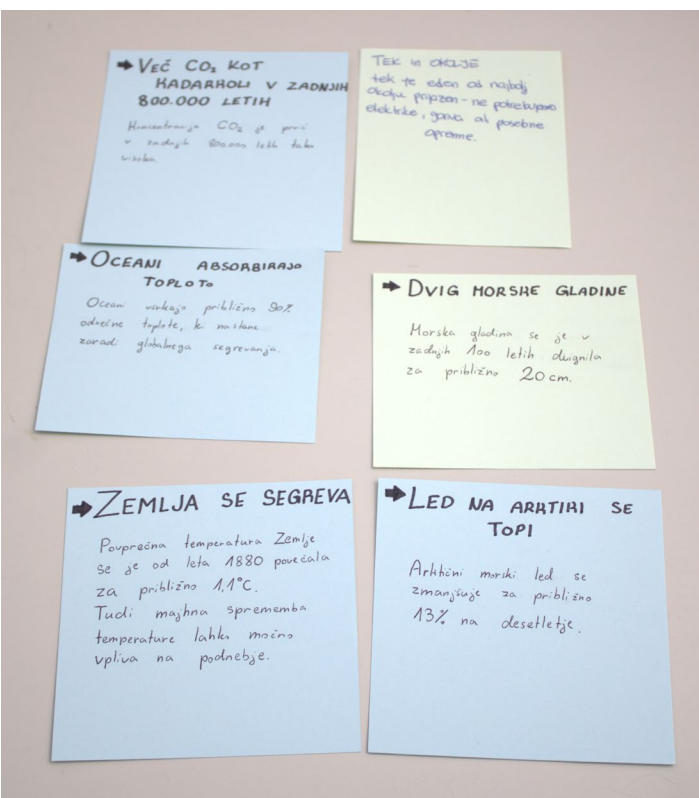 ➡ VEČ CO₂ KOT
KADARKOLI V ZADNJIH
800.000 LETIH
Koncentracija CO₂ je prvič
v zadnjih 800.000 letih tako
visoka.
TEK in OKOLJE
tek je eden od najbolj
okolju prijazen - ne potrebujemo
elektrike, goriva ali posebne
opreme.
➡ OCEANI ABSORBIRAJO
TOPLOTO
Oceani vsrkajo približno 90%
odvečne toplote, ki nastane
zaradi globalnega segrevanja.
➡ DVIG MORSKE GLADINE
Morska gladina se je v
zadnjih 100 letih dvignila
za približno 20 cm.
➡ ZEMLJA SE SEGREVA
Povprečna temperatura Zemlje
se je od leta 1880 povečala
za približno 1,1°C.
Tudi majhna sprememba
temperature lahko močno
vpliva na podnebje.
➡ LED NA ARKTIKI SE
TOPI
Arktični morski led se
zmanjšuje za približno
13% na desetletje.